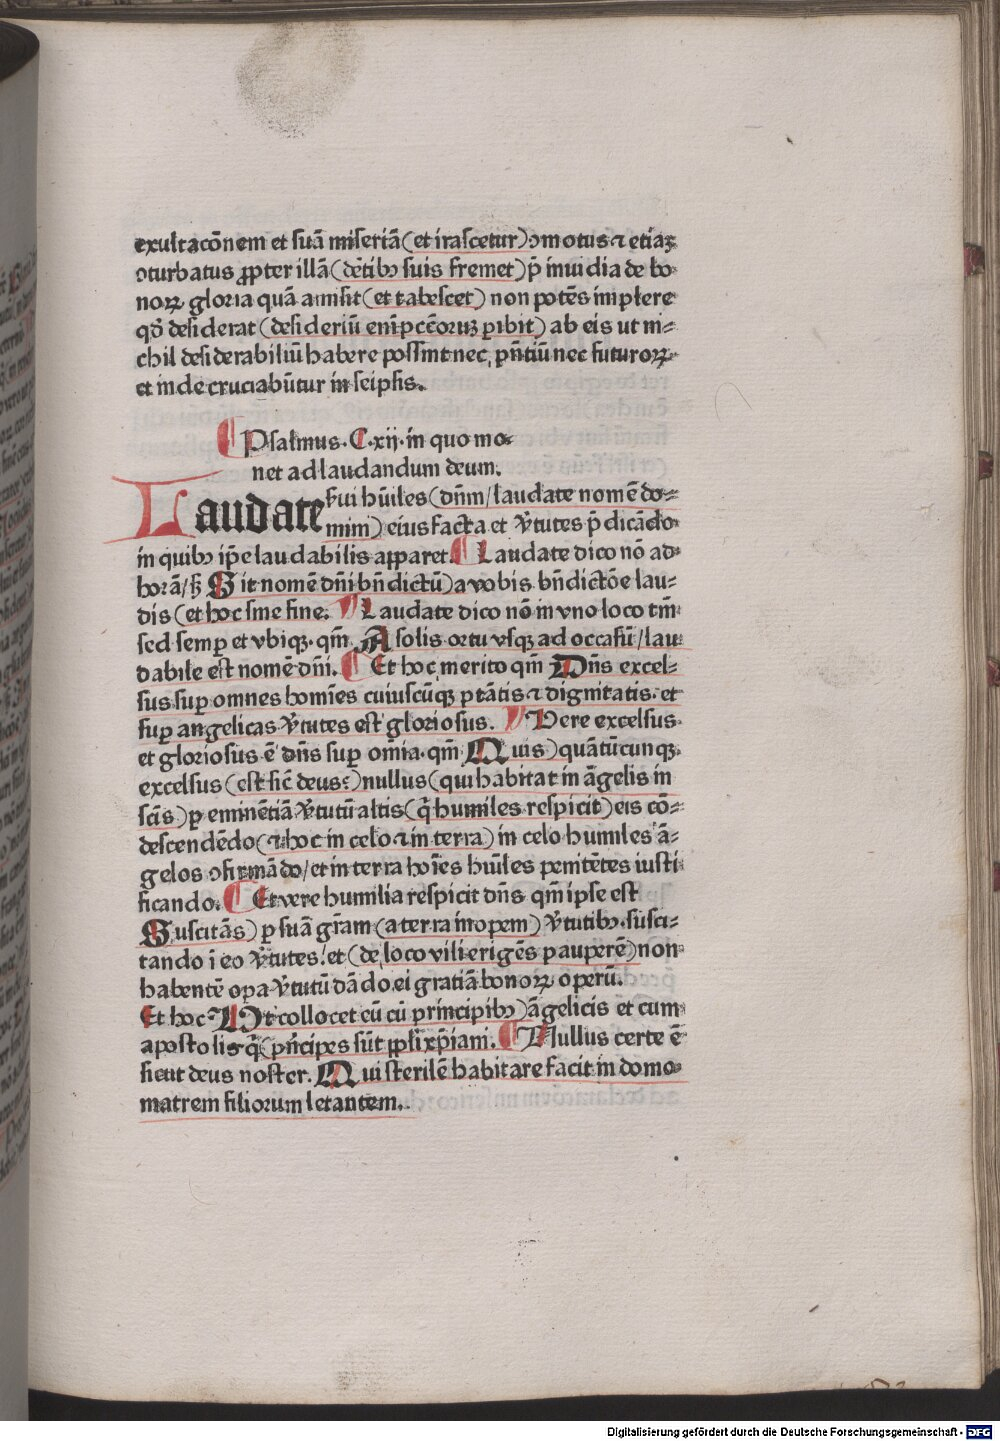 exultacōnem et suā miseriā (et irascetur) ↄmotus ⁊ etiāꝫ
ↄturbatus ꝓpter illā (dētibꝯ suis fremet) p̄ inuidia de bo-
noꝝ gloria quā amisit (et tabescet) non potēs implere
qd̄ desiderat (desideriū em̄ pctōꝝ ꝑibit) ab eis ut ni-
chil desiderabiliū habere possint nec p̄ntiū nec futuroꝝ
et inde cruciabūtur in seipsis.
Psalmus. C.xij. in quo mo-
net ad laudandum deum.
Laudate s̄ui hūiles (dn̄m / laudate nomē do-
mini) eius facta et v̄tutes p̄dicādo
in quibꝯ ip̄e laudabilis apparet. Laudate dico nō ad
horā / sꝫ Sit nomē dn̄i bn̄dictū) a vobis bn̄dictōe lau-
dis (et hoc sine fine. Laudate dico nō in vno loco tm̄
sed semꝑ et vbiqꝫ. qm̄ A solis ortu vsqꝫ ad occasū / lau
dabile est nomē dn̄i. Et hoc merito qm̄ Dn̄s excel-
sus suꝑ omnes homīes cuiuscūqꝫ ptātis ⁊ dignitatis. et
suꝑ angelicas v̄tutes est gloriosus. Vere excelsus
et gloriosus ē dn̄s suꝑ om̄ia. qm̄ Quis) quātūcunqꝫ
excelsus (est sic̄ deus?) nullus (qui habitat in āgelis in
sc̄is) ꝑ eminētiā v̄tutū altis (q̄ humiles respicit) eis cō-
descendēdo (⁊ hoc in celo ⁊ in terra) in celo humiles ā-
gelos ↄfirmādo / et in terra hoīes hūiles penitētes iusti
ficando. Et vere humilia respicit dn̄s qm̄ ipse est
Suscitās) ꝑ suā gr̄am (a terra inopem) v̄tutibꝯ. susci-
tando ī eo v̄tutes. et (de loco vili erigēs pauperē) non
habentē oꝑa v̄tutū dādo ei gratiā bonoꝝ operū.
Et hoc Vt collocet eū cū principibꝯ) āgelicis et cum
apostolis q̄ (pn̄cipes sūt ppl̄i xp̄iani. Nullus certe ē
sicut deus noster. Qui sterilē habitare facit in domo
matrem filiorum letantem.
Digitalisierung gefördert durch die Deutsche Forschungsgemeinschaft - DFG